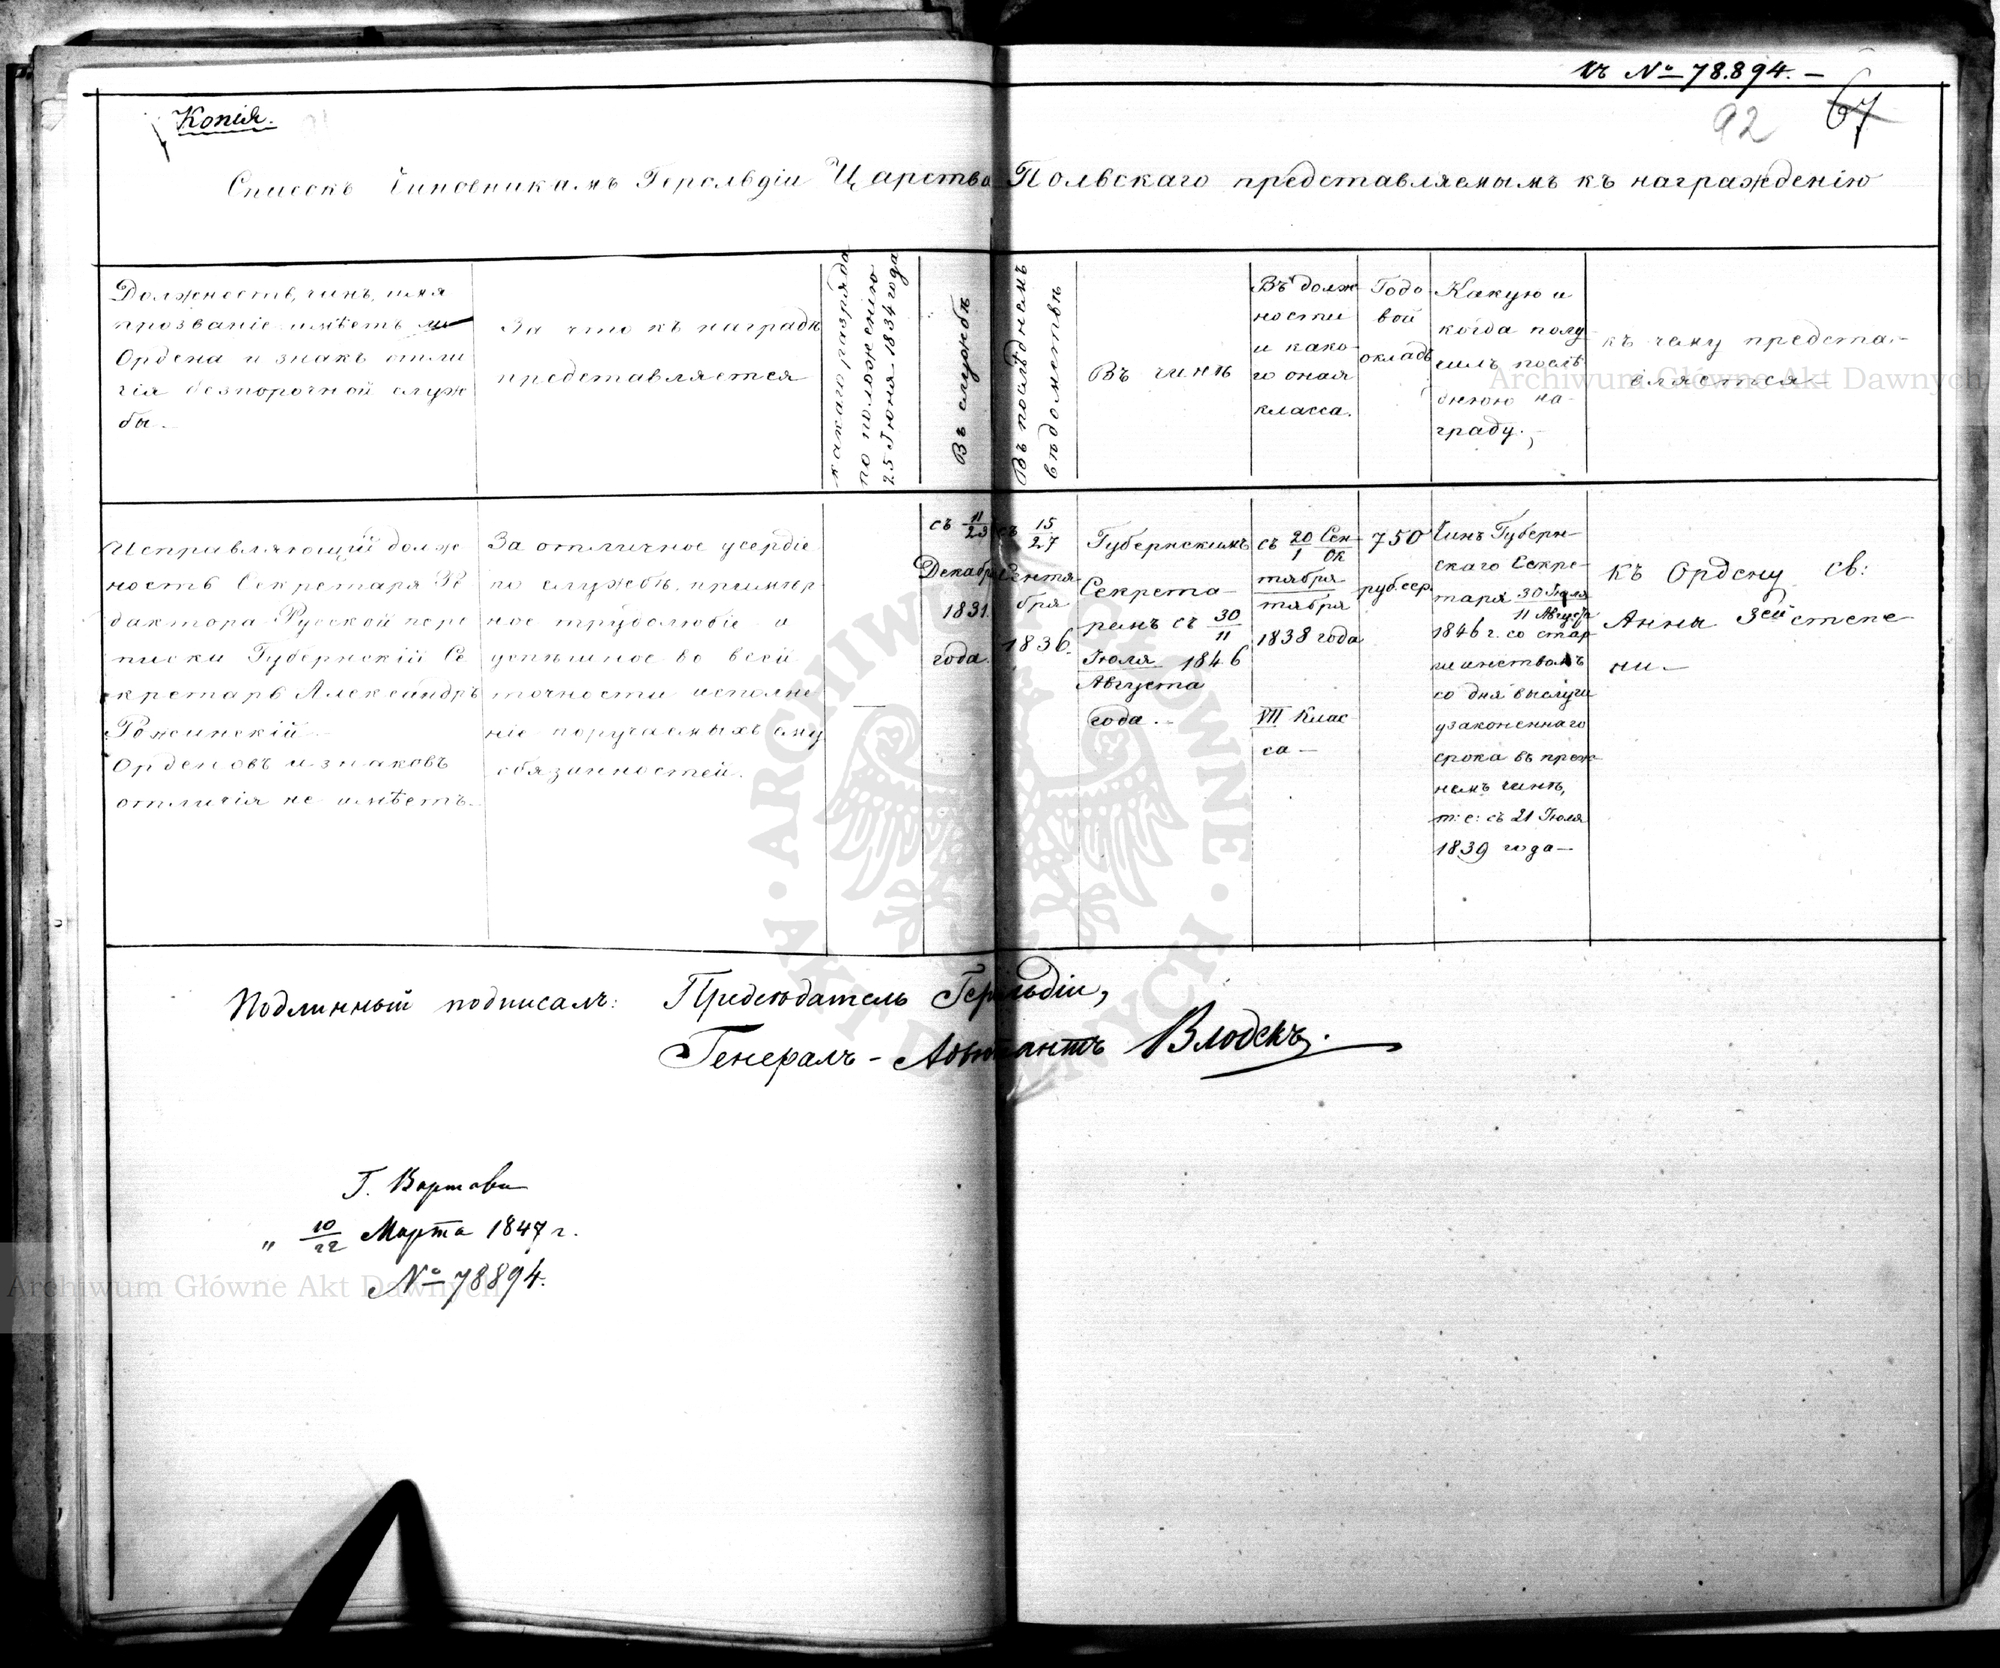 къ № 78.894.—
Копія.
92 67
Списокъ Чиновникамъ Герольдіи Царства Польскаго представляемымъ къ награжденію
Должность, чинъ, имя
прозваніе имѣетъ ли
Ордена и знакъ отли
чія безпорочной служ
бы.—
За что къ наградѣ
представляется
какаго разряда
по положенію
25 Іюня 1834 года
Въ службѣ
Въ послѣднемъ
вѣдомствѣ
Въ чинѣ
Въ долж
ности
и како-
го оная
класса.
Годо
вой
окладъ
Какую и
когда полу
чилъ послѣ
днюю на-
граду.
къ чему предста-
вляется—
Исправляющій долж
ность Секретаря Ре
дактора Русской пере
писки Губернскій Се
кретарь Александръ
Рожинскій—
Орденовъ и знаковъ
отличія не имѣетъ.
За отличное усердіе
по службѣ, примѣр
ное трудолюбіе и
успѣшное во всей
точности исполне
ніе поручаемыхъ ему
обязанностей.
—
съ 11/23
Декабря
1831.
года.
съ 15/27
Сентя
бря
1836.
Губернскимъ
Секрета-
ремъ съ 30/11
Іюля 1846
Августа
года.—
съ 20/1 Сен/Ок
тября
тября
1838 года
VII Клас
са—
750
руб. сер.
Чинъ Губерн-
скаго Секре-
таря 30 Іюля
11 Августа
1846 г. со стар
шинствомъ
со дня выслуги
узаконеннаго
срока въ преж
немъ чинѣ,
т: е: съ 21 Іюля
1839 года—
къ Ордену Св:
Анны 3ей степе
ни—
Подлинный подписалъ: Предсѣдатель Герольдіи,
Генералъ-Адъютантъ Влодекъ.
Г. Варшава
„ 10/22 Марта 1847 г.
№ 78894.
Archiwum Główne Akt Dawnych
Archiwum Główne Akt Dawnych
ARCHIWUM GŁÓWNE AKT DAWNYCH